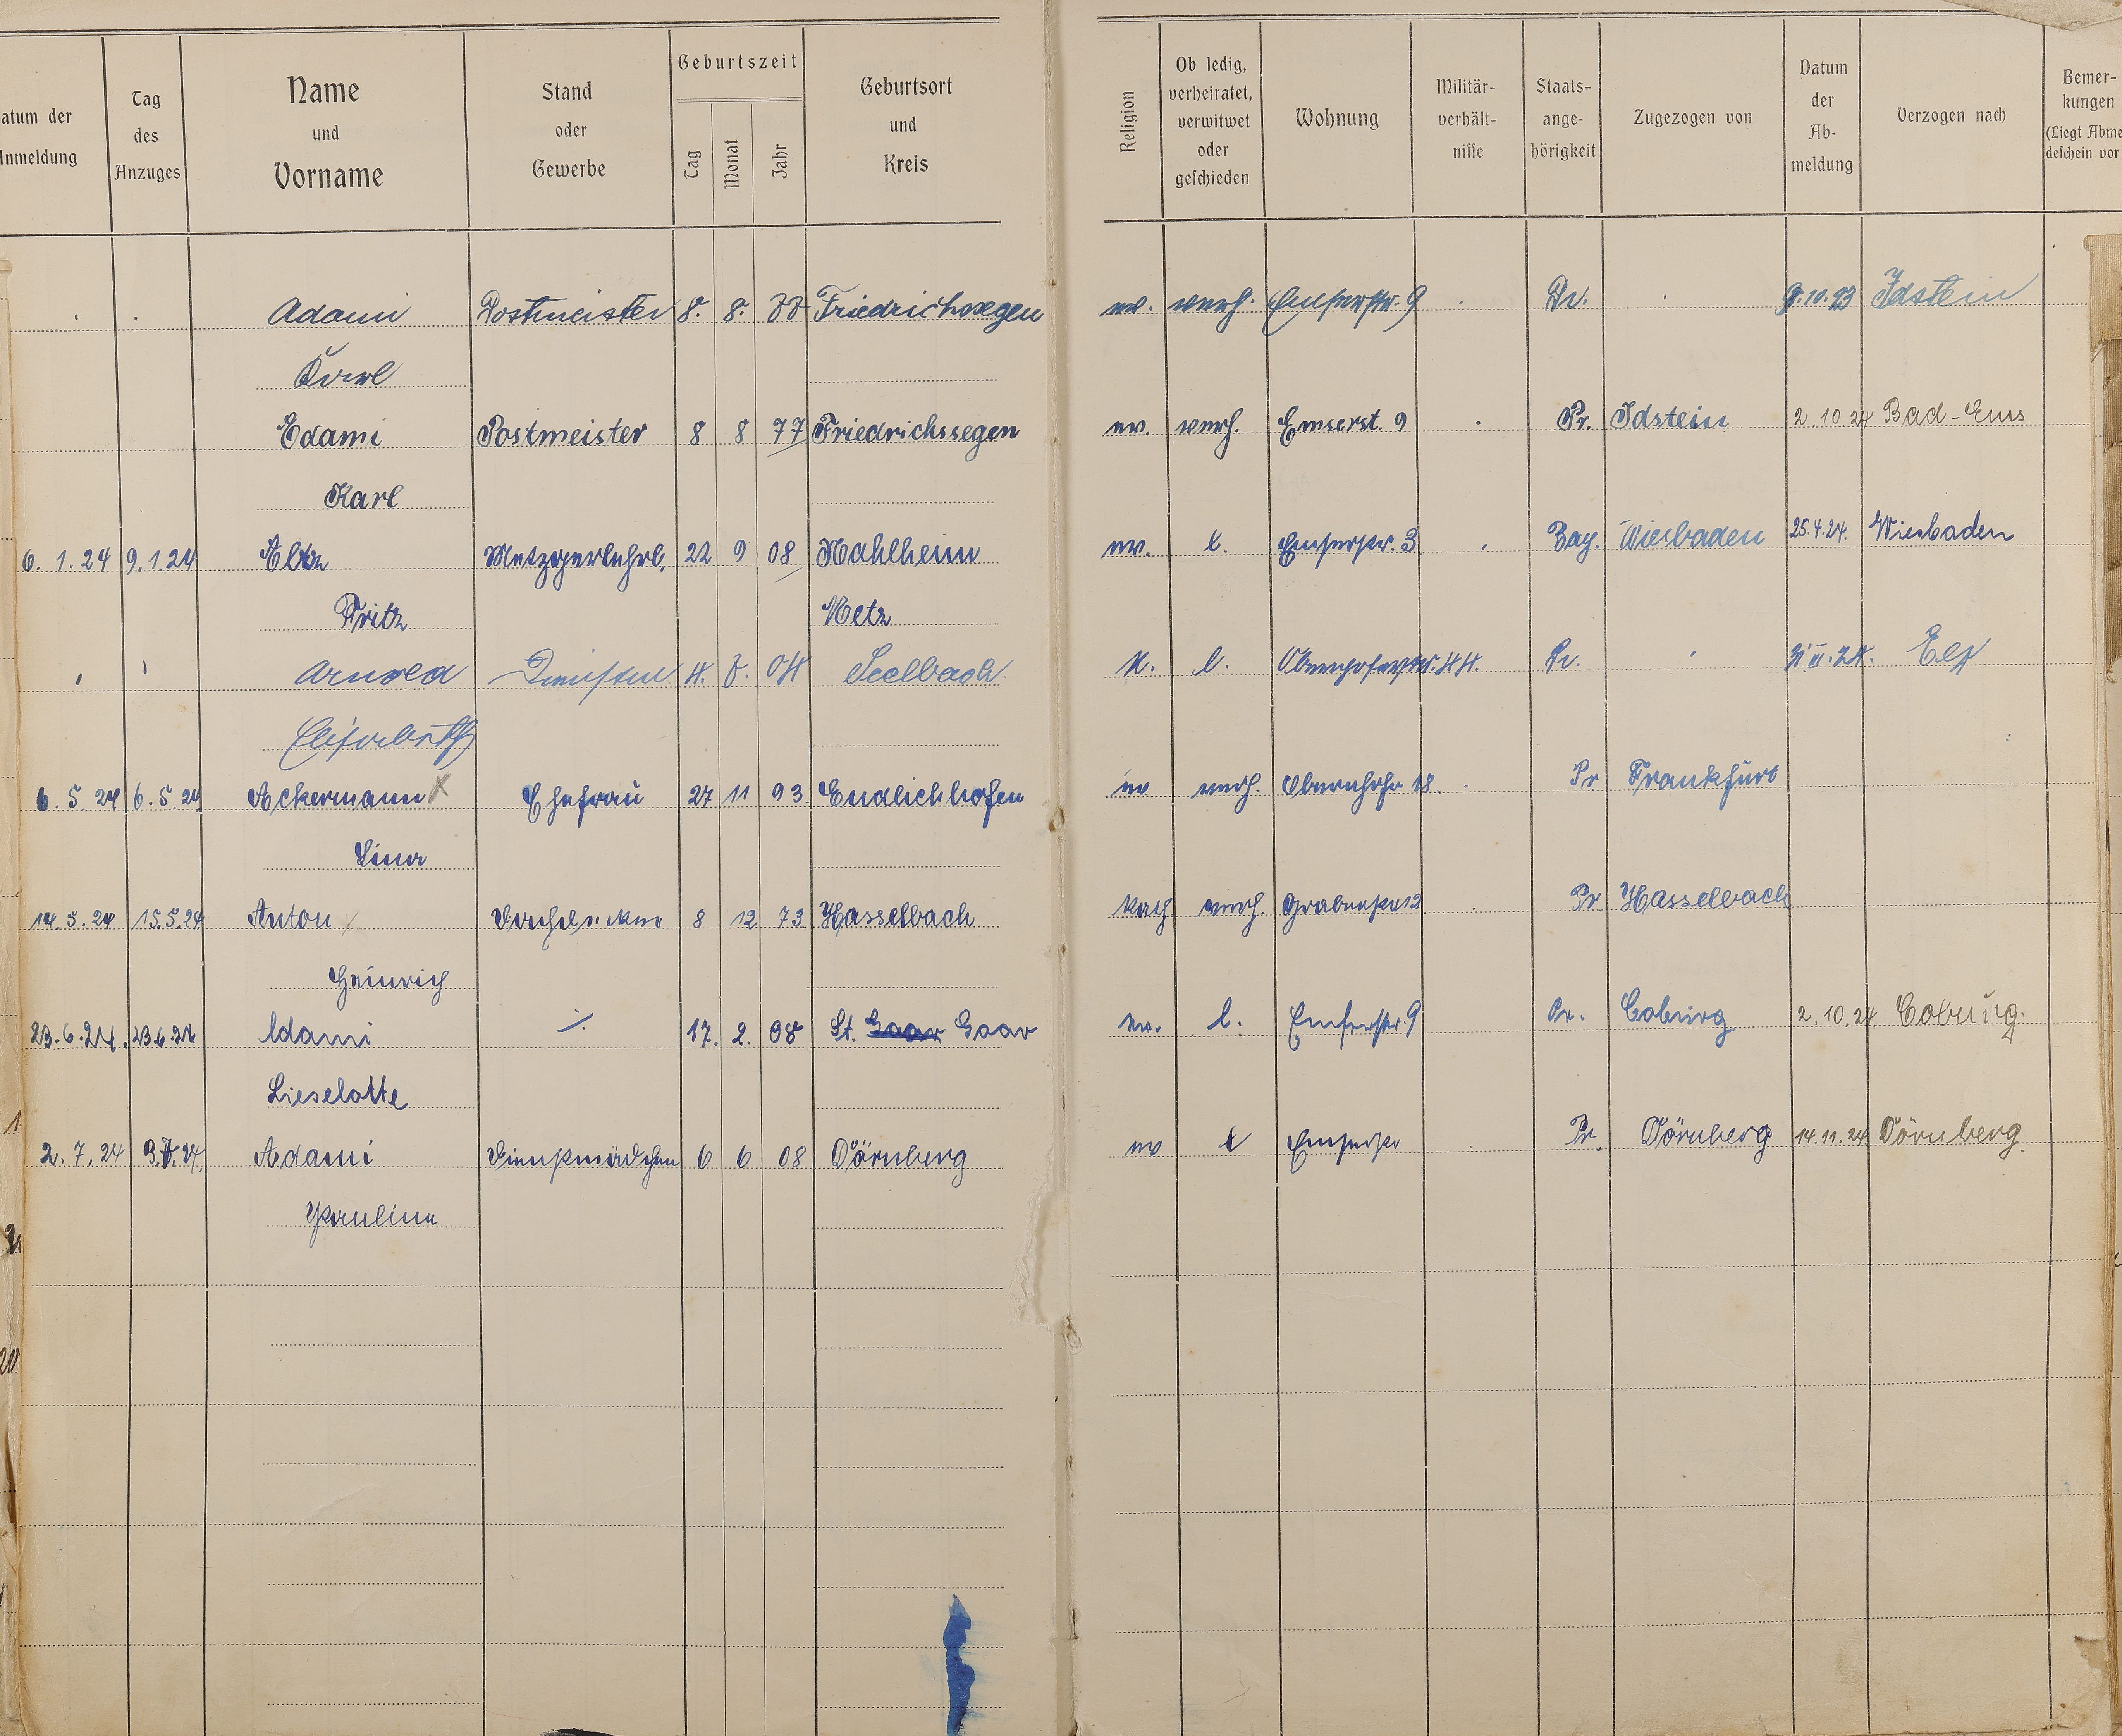 atum der Anmeldung
Tag des Anzuges
Name und Vorname
Stand oder Gewerbe
Geburtszeit
Tag Monat Jahr
Geburtsort und Kreis
Religion
Ob ledig, verheiratet, verwitwet oder geschieden
Wohnung
Militär-verhält-nisse
Staats-ange-hörigkeit
Zugezogen von
Datum der Ab-meldung
Verzogen nach
Bemer-kungen (Liegt Abme deschein vor
Adami Postmeister 8. 8. 77 Friedrichssegen ev. verh. Emserstr. 9 Pr. 9.10.23 Idstein
Karl
Adami Postmeister 8 8 77 Friedrichssegen ev. verh. Emserst. 9 Pr. Idstein 2.10.24 Bad-Ems
Karl
6.1.24 9.1.24 Metzgerlehrl. 22 9 08 ev. l. Emserstr. 3 Bay. Wiesbaden 25.4.24. Wiesbaden
Fritz Metz
Arnold 4. 7. 04 Seelbach K. l. Obernhoferstr. 44. Pr.
Elisabeth
6.5.24 6.5.24 Ackermann Ehefrau 27 11 93 Endlichhofen ev verh. Obernhofer 18. Pr Frankfurt
Lina
14.5.24 15.5.24 Anton 8 12 73 Hasselbach Kath verh. Grabenstr 12 Pr Hasselbach
Heinrich
23.6.24. 23.6.24 Adami ⁒ 17. 2. 08 St. Goar Goar ev. l. Emserstr. 9 Pr. Coburg 2.10.24 Coburg.
Lieselotte
2.7.24 Adami Dienstmädchen 6 6 08 Dörnberg ev l Emserstr Pr. Dörnberg 14.11.24 Dörnberg.
Pauline